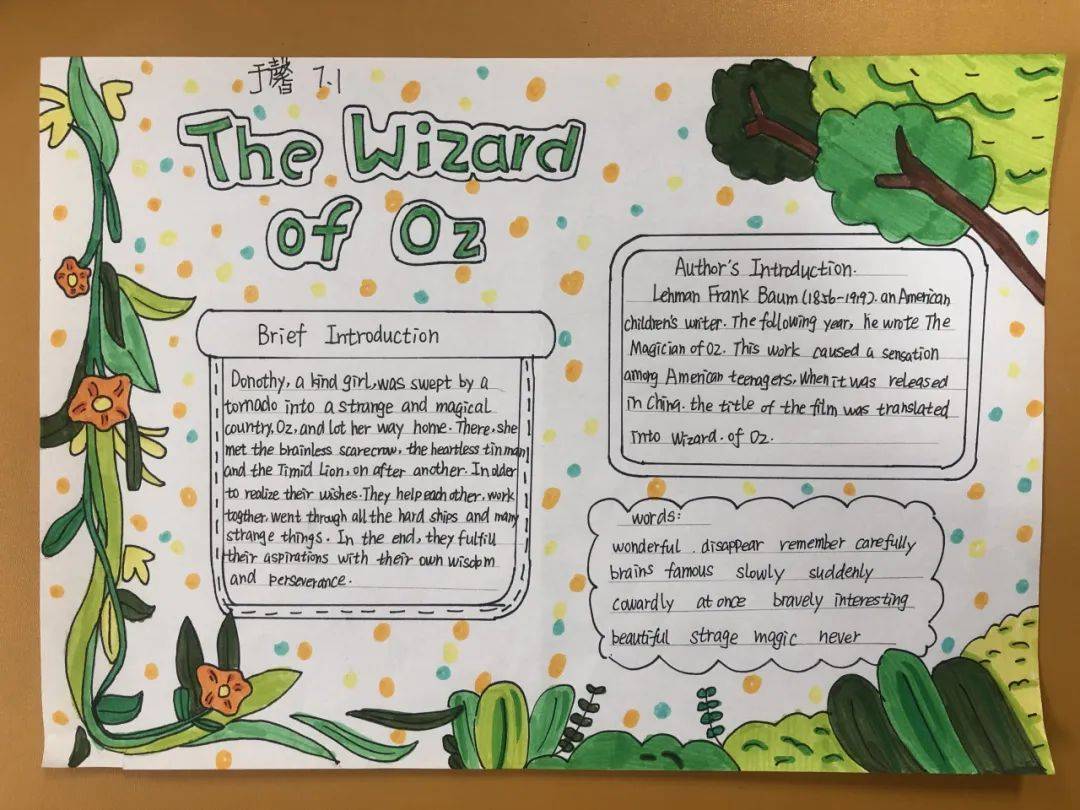 于馨 7.1
The Wizard
of Oz
Brief Introduction
Donothy, a kind girl, was swept by a
tornado into a strange and magical
country, Oz, and lot her way home. There, she
met the brainless scarecrow, the heartless tin man
and the Timid Lion, on after another. In older
to realize their wishes. They help each other, work
togther, went through all the hard ships and many
strange things. In the end, they fulfill
their aspirations with their own wisdom
and perseverance.
Author's Introduction.
Lehman Frank Baum (1856-1919). an American
children's writer. The following year, he wrote The
Magician of Oz. This work caused a sensation
among American teenagers, when it was released
in China. the title of the film was translated
into Wizard. of Oz.
words:
wonderful . disappear remember carefully
brains famous slowly suddenly
cowardly at once bravely interesting
beautiful strage magic never